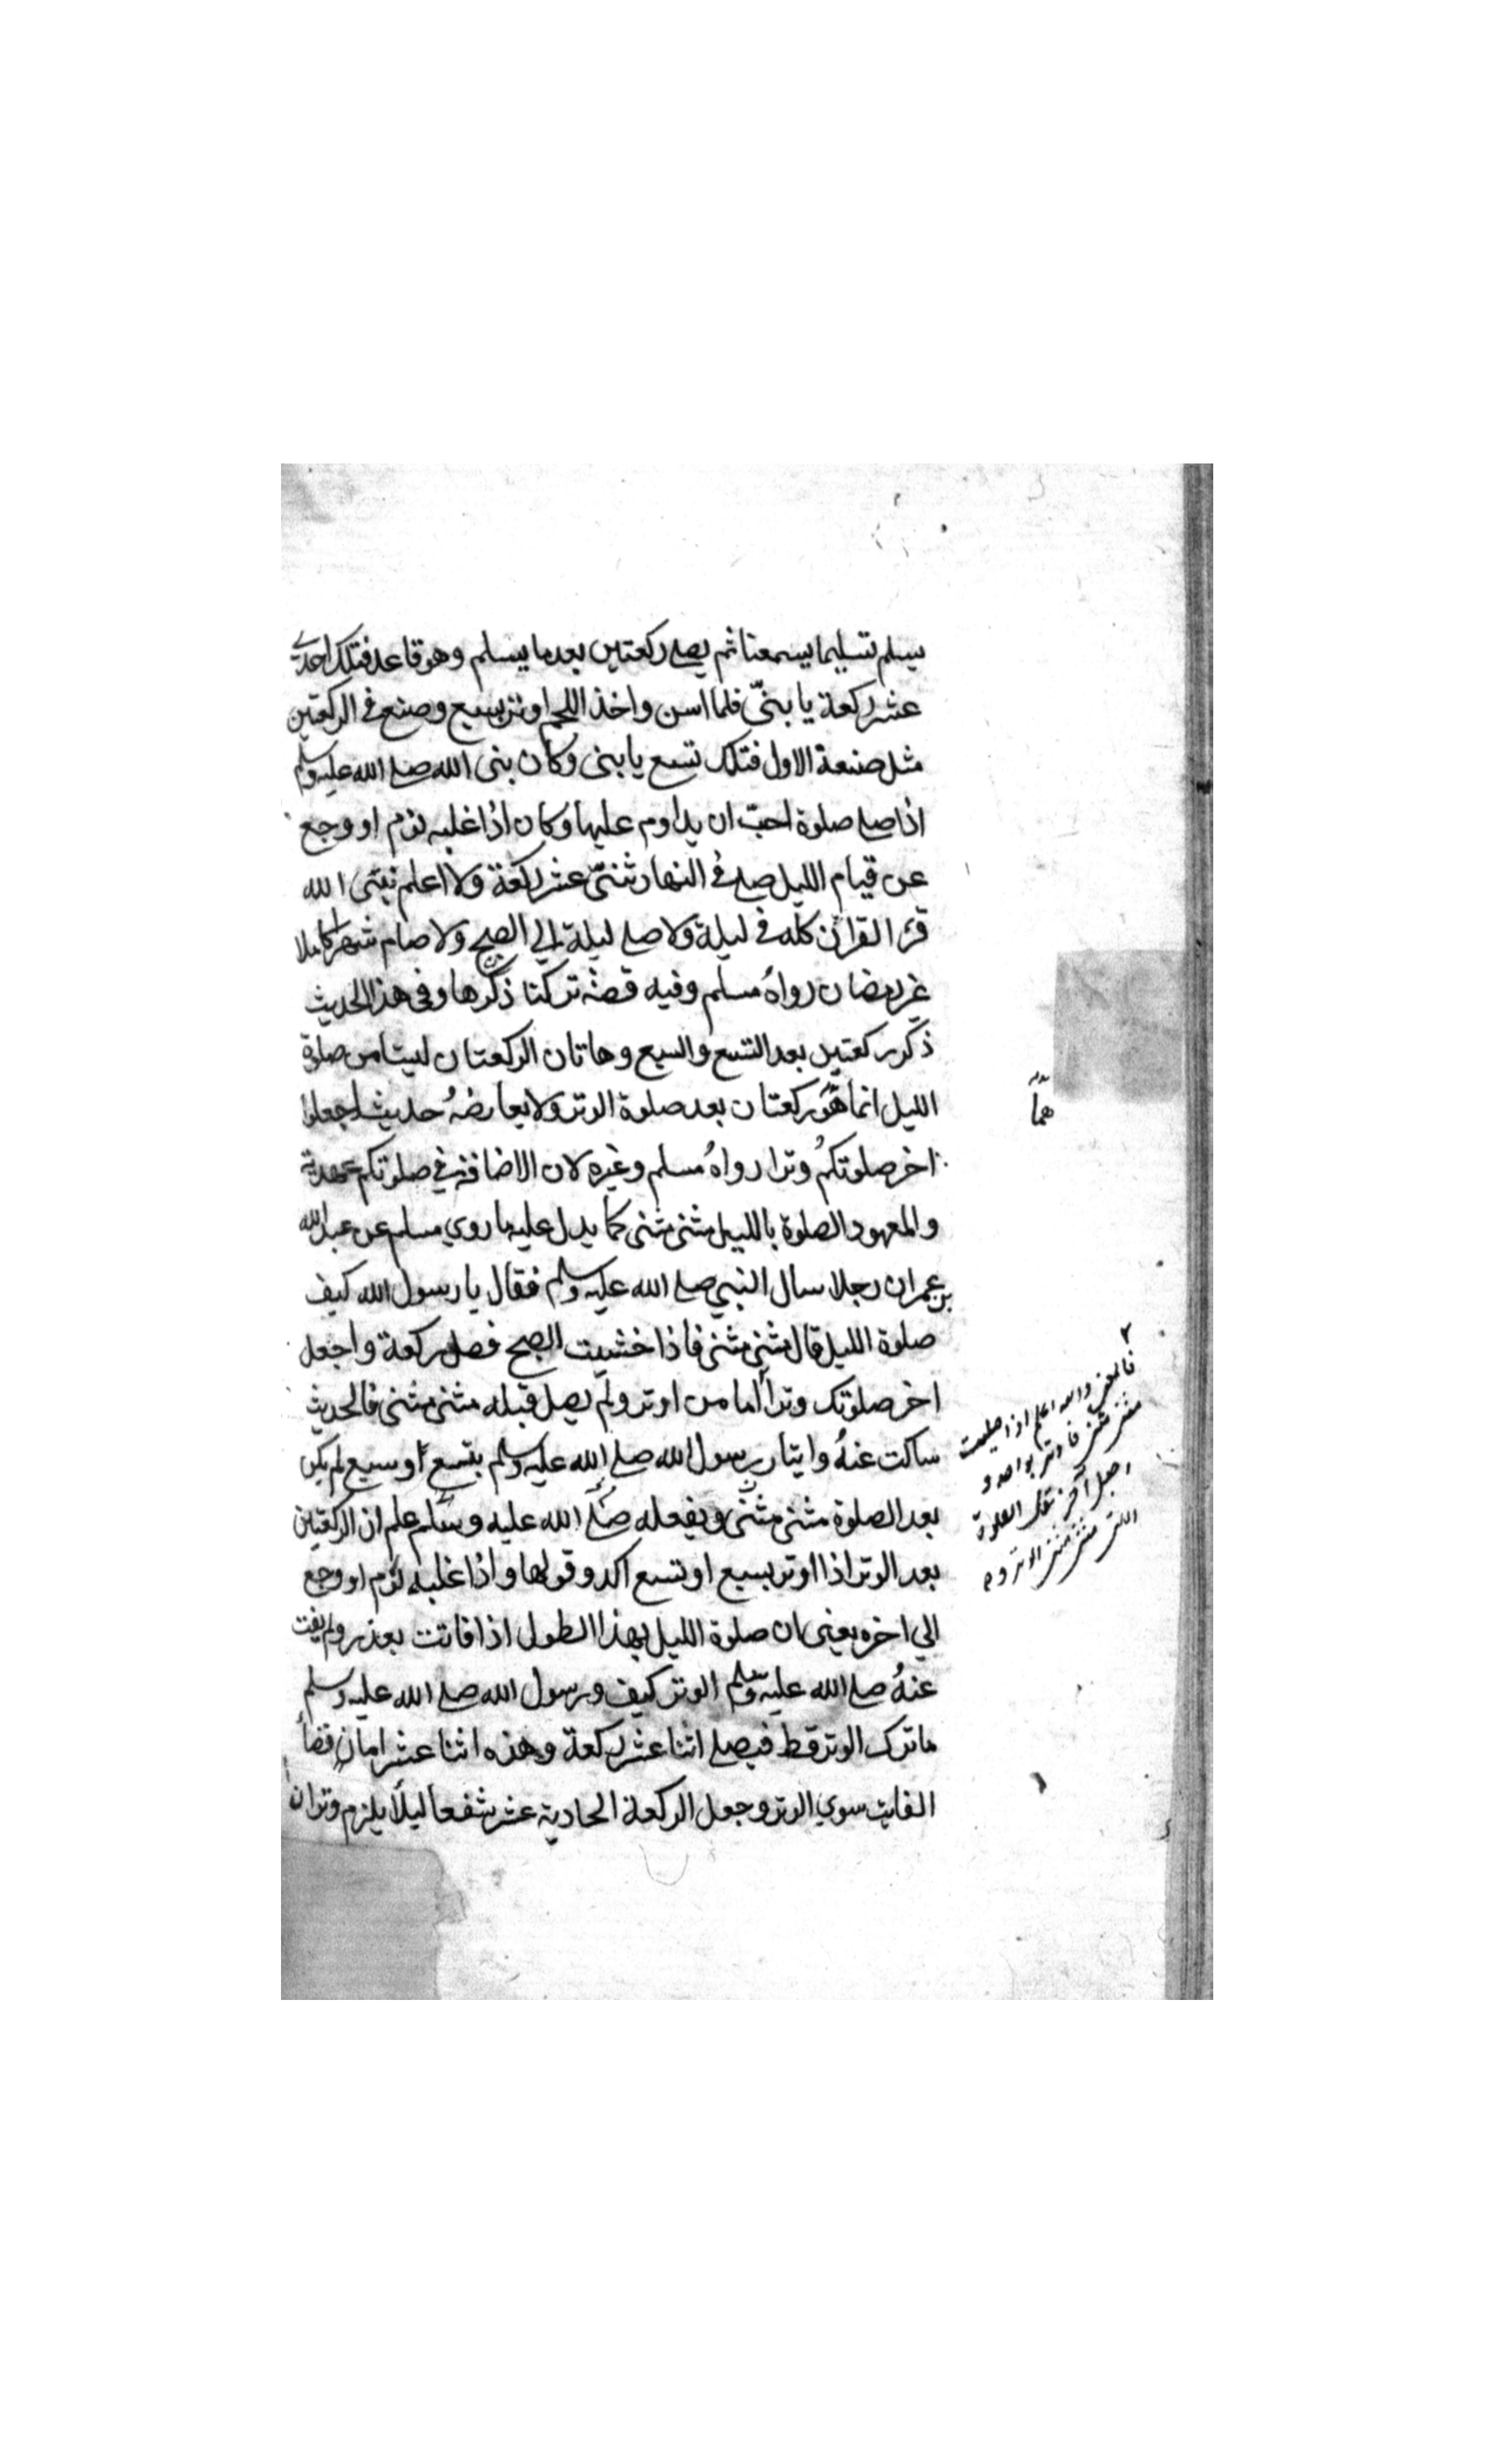 يسلم تسليما يسمعنا ثم يصلي ركعتين بعد ما يسلم وهو قاعد فتلك احدي
عشر ركعة يا بنيّ فلما اسن واخذ اللحم اوتر بسبع وصنع في الركعتين
مثل صنعة الاول فتلك تسع يا بنى وكان بنى الله صلي الله عليه وسلم
اذا صلي صلوة احبّ ان يداوم عليها وكان اذا غلبه نوم او وجع
عن قيام الليل صلي في النهار ثنتيّ عشر ركعة ولا اعلم نبيّ الله
قرء القران كله في ليلة ولا صلي ليلة الي الصبح ولا صام شهرا كاملا
غير رمضان رواهُ مسلم وفيه قصة تركنا ذكرها وفي هذا الحديث
ذكر ركعتين بعد التسع والسبع وهاتان الركعتان ليستا من صلوة
الليل انما هو ركعتان بعد صلوة الوتر ولا يعارضهُ حديث اجعلوا
اخر صلوتكم وترا رواهُ مسلم وغيره لان الاضافة في صلوتكم عهدية
والمعهود الصلوة بالليل مثنى مثنى كما يدل عليه ما روي مسلم عن عبد الله
بن عمر ان رجلا سال النبي صلي الله عليه وسلم فقال يا رسول الله كيف
صلوة الليل قال مثنى مثنى فاذا خشيت الصبح فصل ركعة واجعل
اخر صلوتك وتراً اما من اوتر ولم يصل قبله مثنى مثنى فالحديث
ساكت عنهُ وايتار رسول الله صلي الله عليه وسلم بتسع او سبع لم يكن
بعد الصلوة مثنى مثنى وبفعله صلي الله عليه وسلم علم ان الركعتين
بعد الوتر اذا اوتر بسبع او تسع اكد وقولها واذا غلبه نوم او وجع
الي اخره يعني ان صلوة الليل بهذا الطول اذا فاتت بعذر ولم يفت
عنهُ صلي الله عليه وسلم الوتر كيف ورسول الله صلي الله عليه وسلم
ما ترك الوتر قط فيصلي اثنا عشر ركعة وهذه اثنا عشر اما ان قضاً
الفايت سوي الوتر وجعل الركعة الحادية عشر شفعا ليلاً يلزم وتران
هما
٢
فالمعنى والله اعلم اذا صليت
مثنى مثنى فاوتر بواحدة و
اجعل آخر تلك الصلوة
التي مثنى مثنى الوتر